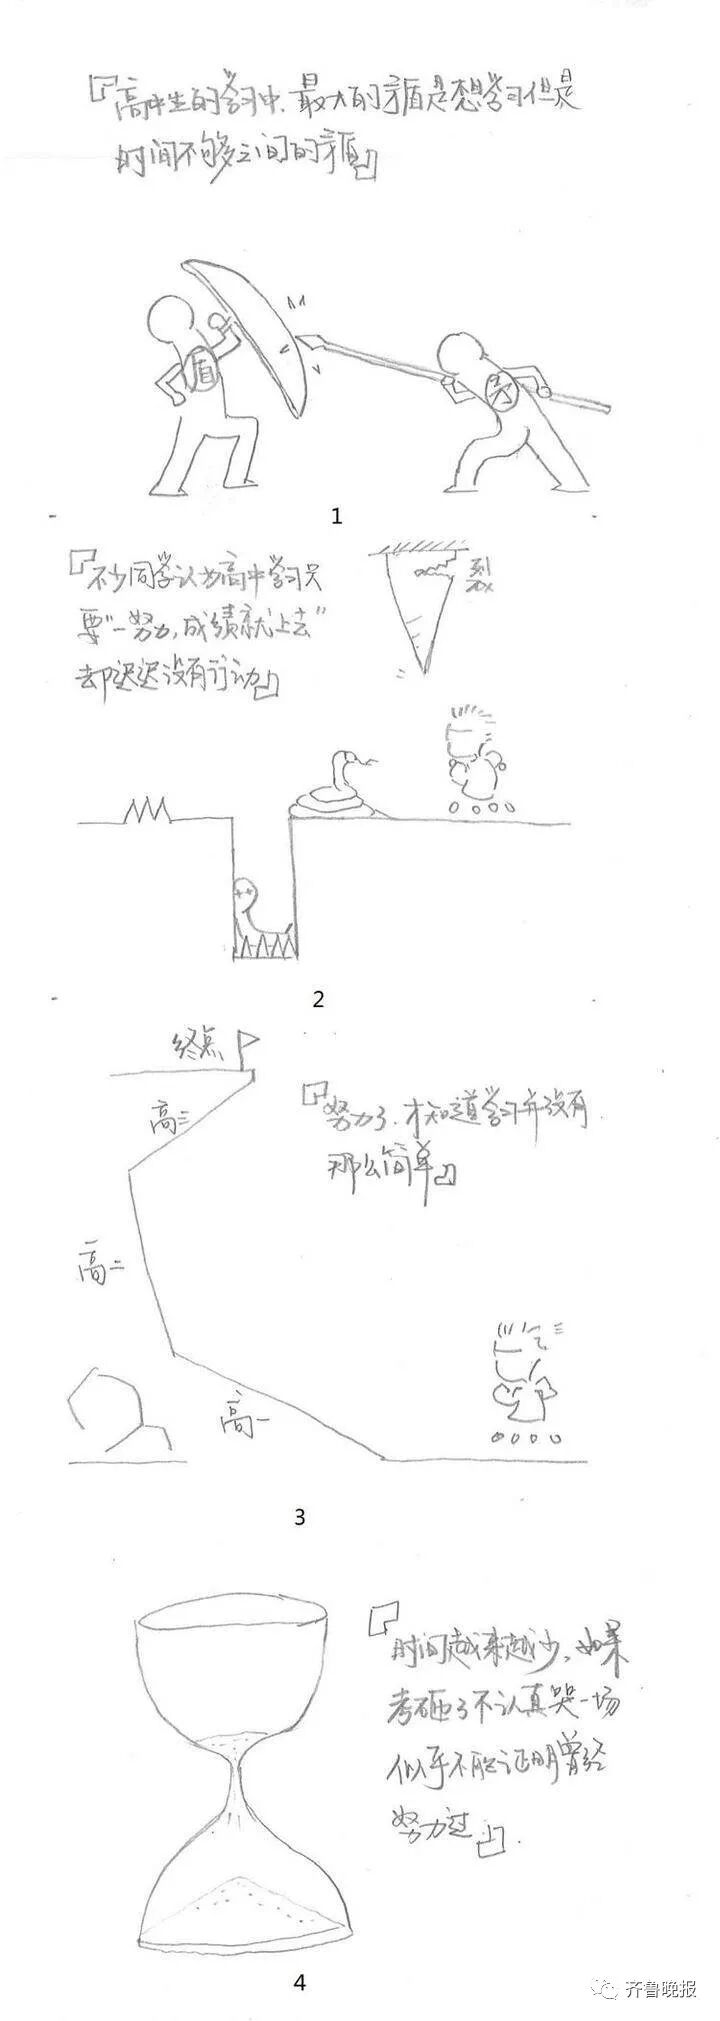 『高中生的学习中,最大的矛盾是想学习但是
时间不够多之间的矛盾』
盾
矛
1
『不少同学认为高中学习只
要“一努力,成绩就上去”
却迟迟没有行动』
2
终点
高三
『努力了,才知道学习并没有
那么简单』
高二
高一
3
『时间越来越少,如果
考砸了不认真哭一场
似乎不能证明曾经
努力过』.
4
齐鲁晚报